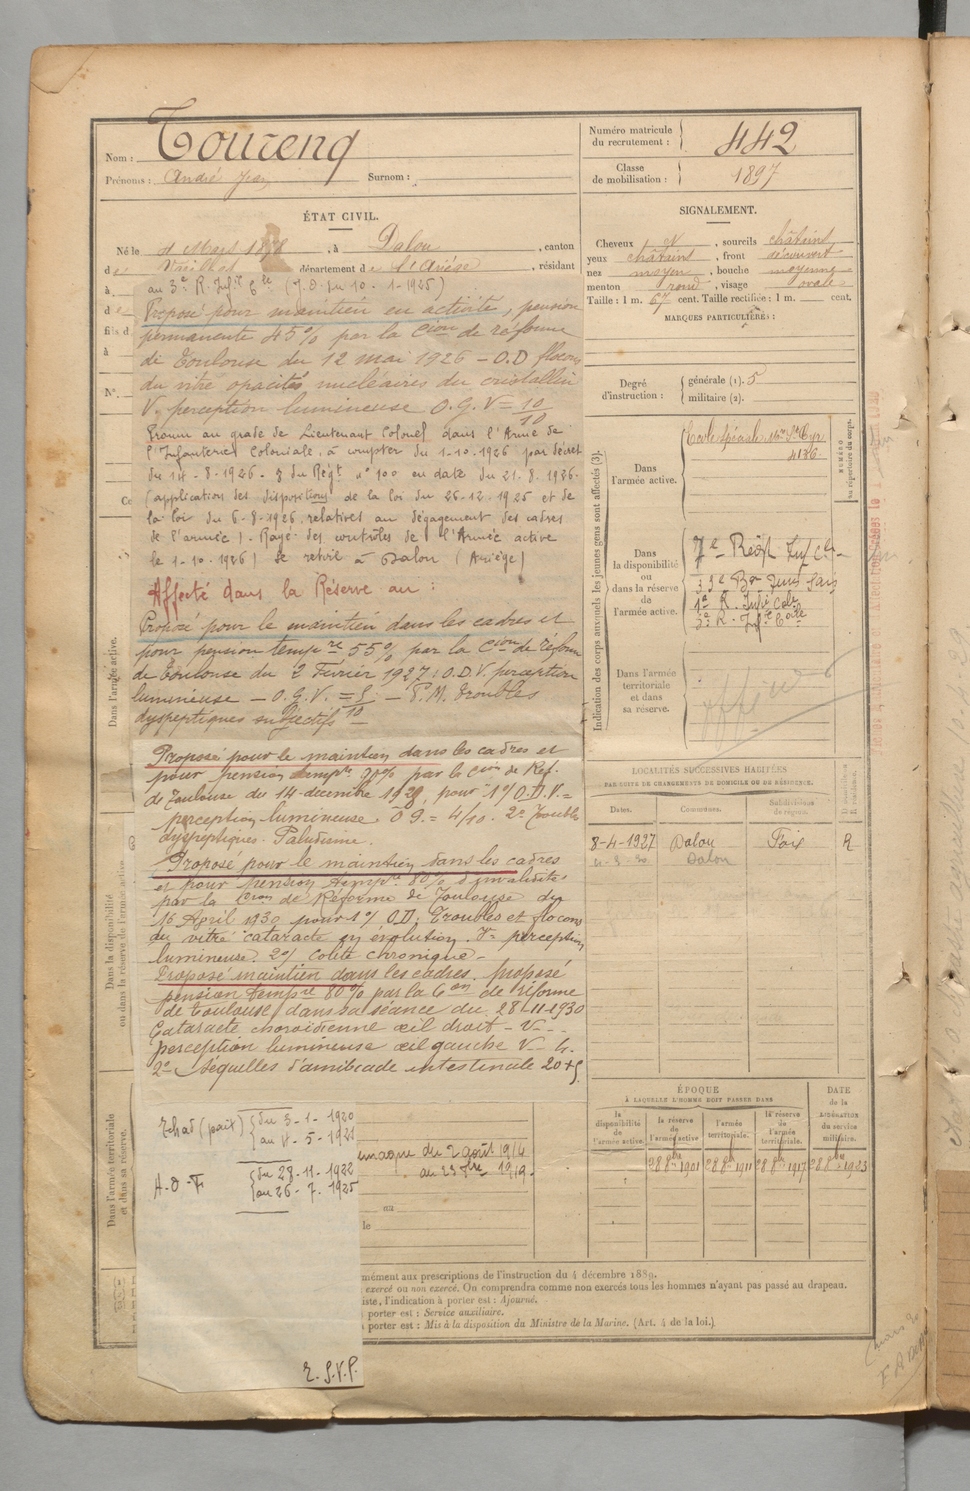 Nom : Tourenq
Prénoms : André Jean Surnom :
Numéro matricule du recrutement : 442
Classe de mobilisation : 1897
ÉTAT CIVIL.
Né le 4 Mars 1878, à Dalou, canton
d Varilhes département de l'Ariège, résidant
à
d
fils d
à
N°.
au 3e R. Inf.ie Cle (J.O. du 10-1-1925)
Proposé pour maintien en activité, pension
permanente 45% par la Cion de réforme
de Toulouse du 12 mai 1926 - O.D flocons
du vitré opacités nucléaires du cristallin
V. perception lumineuse O.G. V = 10/10
Promu au grade de Lieutenant Colonel dans l'Armée de
l'Infanterie Coloniale, à compter du 1-10-1926 par décret
du 14-8-1926 - du Règt n° 100 en date du 21.8.1926.
(application des dispositions de la loi du 26-12 1925 et de
la loi du 6-8-1926, relatives au dégagement des cadres
de l'armée). Rayé des contrôles de l'Armée active
le 1-10-1926) Se retire à Dalou (Ariège)
Affecté dans la Réserve au :
Proposé pour le maintien dans les cadres et
pour pension tempre 55% par la Cion de réforme
de Toulouse du 2 Février 1927 : O.D.V. perception
lumineuse - O.G.V. = /10 - P.M. Troubles
dyspeptiques subjectifs
Proposé pour le maintien dans les cadres et
pour pension tempre 90% par la Cion de Réf.
de Toulouse du 14 décembre 1928, pour 1°/ O.D.V. =
perception lumineuse O G. = 4/10. 2° Troubles
dyspeptiques. Paludisme.
Proposé pour le maintien dans les cadres
et pour pension tempre 80% d'invalidité
par la Cion de Réforme de Toulouse du
16 April 1930 pour 1°/ OD. Troubles et flocons
du vitré cataracte en évolution. V= perception
lumineuse. 2°/ Colite chronique -
Proposé maintien dans les cadres, proposé
pension tempre 80% par la Con de réforme
de Toulouse, dans sa séance du 28-11-1930
Cataracte choroïdienne œil droit - V =
perception lumineuse œil gauche V
2° Séquelles d'amibiase intestinale 20+5
Tchad (pait) du 3-1-1920
au 4-5-1921
A-O-F du 28-11-1922
au 26-7-1925
T.S.V.P.
du 2 août 1914
au 23 1919.
au
le
SIGNALEMENT.
Cheveux , sourcils châtains
yeux châtains, front découvert
nez moyen, bouche moyenne
menton rond, visage ovale
Taille : 1 m. 67 cent. Taille rectifiée : 1 m. cent.
MARQUES PARTICULIÈRES :
Degré d'instruction : générale (1). 5
militaire (2).
Indication des corps auxquels les jeunes gens sont affectés (3).
NUMÉRO au répertoire du corps.
Dans l'armée active.
Ecole Spéciale Mre St Cyr
4136
Dans la disponibilité ou dans la réserve de l'armée active.
7e Regt Inf Cle
1er R. Infie Cole
3e R. Infie Cole
Dans l'armée territoriale et dans sa réserve.
LOCALITÉS SUCCESSIVES HABITÉES
PAR SUITE DE CHANGEMENTS DE DOMICILE OU DE RÉSIDENCE.
Dates. Communes. Subdivisions de région.
8-4-1927 Dalou Foix R
Dalou
ÉPOQUE
À LAQUELLE L'HOMME DOIT PASSER DANS
DATE de la LIBÉRATION du service militaire.
la disponibilité de l'armée active.
la réserve de l'armée active
l'armée territoriale.
la réserve de l'armée territoriale.
28 8bre 1901 28 8bre 1911 28 8bre 1917 28 8bre 1923
Dans l'armée active.
Dans la disponibilité ou dans la réserve de l'armée active
Dans l'armée territoriale et dans sa réserve.
mément aux prescriptions de l'instruction du 4 décembre 1889.
exercé ou non exercé. On comprendra comme non exercés tous les hommes n'ayant pas passé au drapeau.
iste, l'indication à porter est : Ajourné.
porter est : Service auxiliaire.
porter est : Mis à la disposition du Ministre de la Marine. (Art. 4 de la loi.)